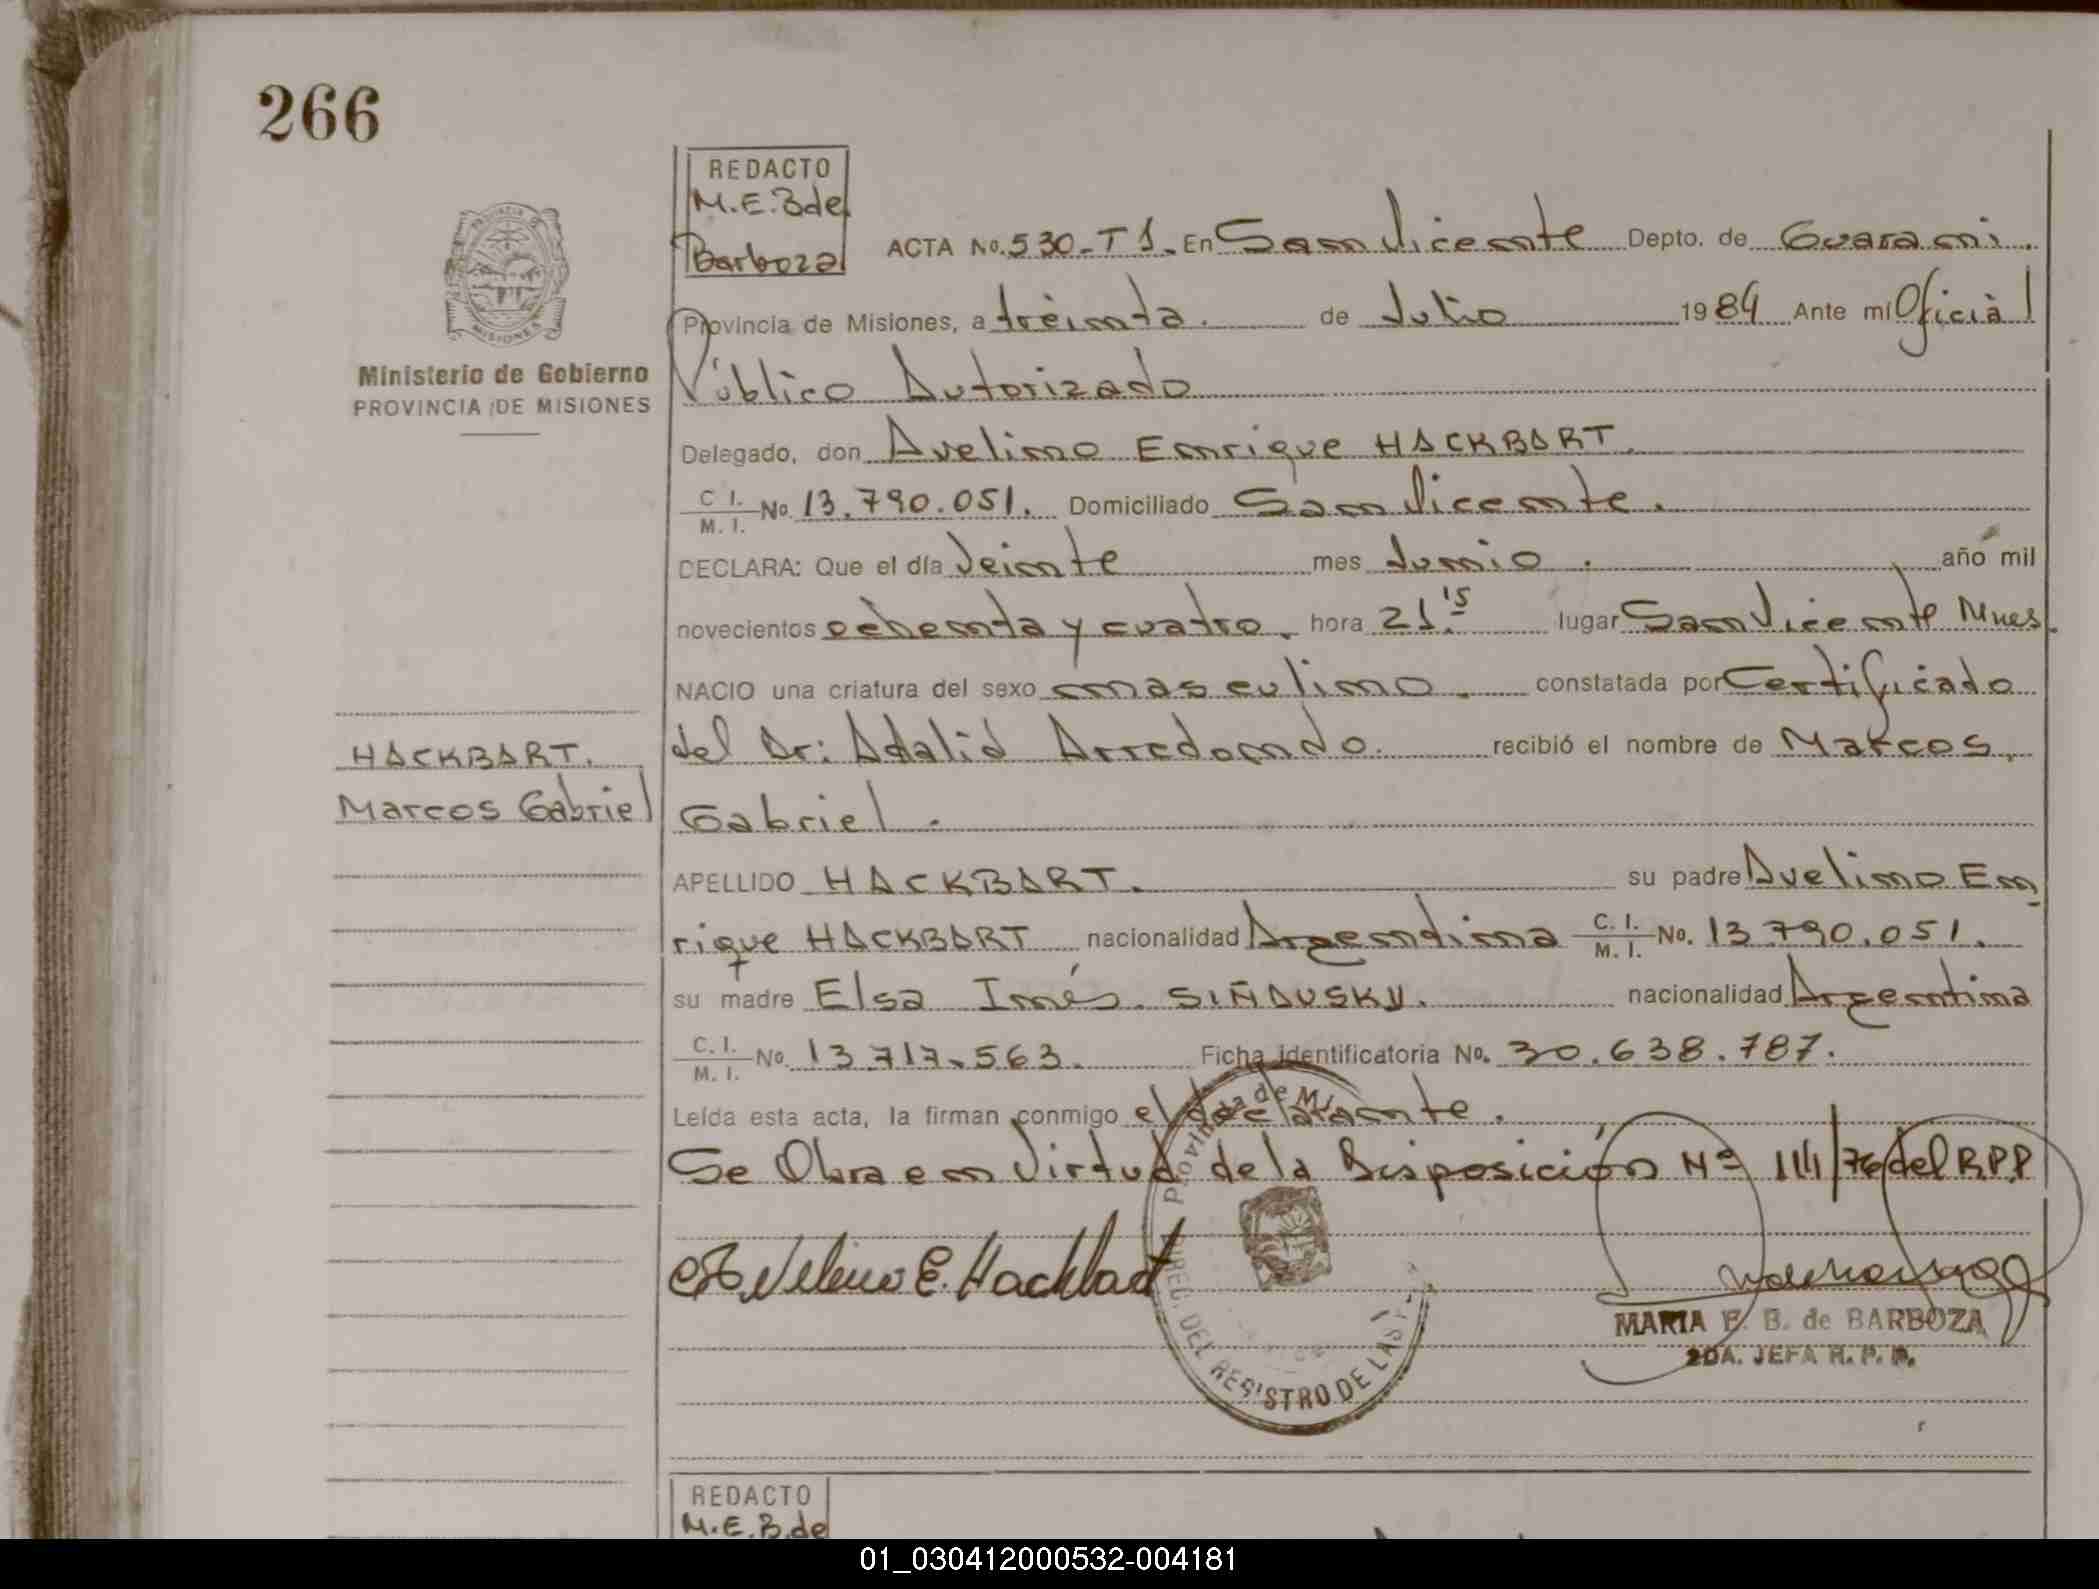 266
REDACTO
M.E.B de
Barboza
ACTA No. 530-T1. En San Vicente Depto. de Guarani.
Provincia de Misiones, a treinta. de Julio 1984 Ante mí Oficial
Público Autorizado
Ministerio de Gobierno
PROVINCIA DE MISIONES
Delegado, don Avelino Enrique HACKBART.
C I. M. I. No. 13.790.051. Domiciliado San Vicente.
DECLARA: Que el día Veinte mes Junio. año mil
novecientos ochenta y cuatro. hora 21.15 lugar San Vicente Mnes.
NACIO una criatura del sexo masculino. constatada por Certificado
del Dr: Adalid Arredondo. recibió el nombre de Marcos
Gabriel.
HACKBART.
Marcos Gabriel
APELLIDO HACKBART. su padre Avelino En
rique HACKBART nacionalidad Argentina C. I. M. I. No. 13.790.051.
su madre Elsa Inés. SIÑAUSKY. nacionalidad Argentina
C. I. M. I. No. 13.717.563. Ficha identificatoria No. 30.638.787.
Leída esta acta, la firman conmigo el declarante.
Se Obra en Virtud de la Disposición Nº /76 del R.P.P
Avelino E. Hackbart
Provincia de Mi
DEL REGISTRO DE LAS
MARIA E. B. de BARBOZA
2DA. JEFA R. P. P.
REDACTO
M.E.B. de
01_030412000532-004181